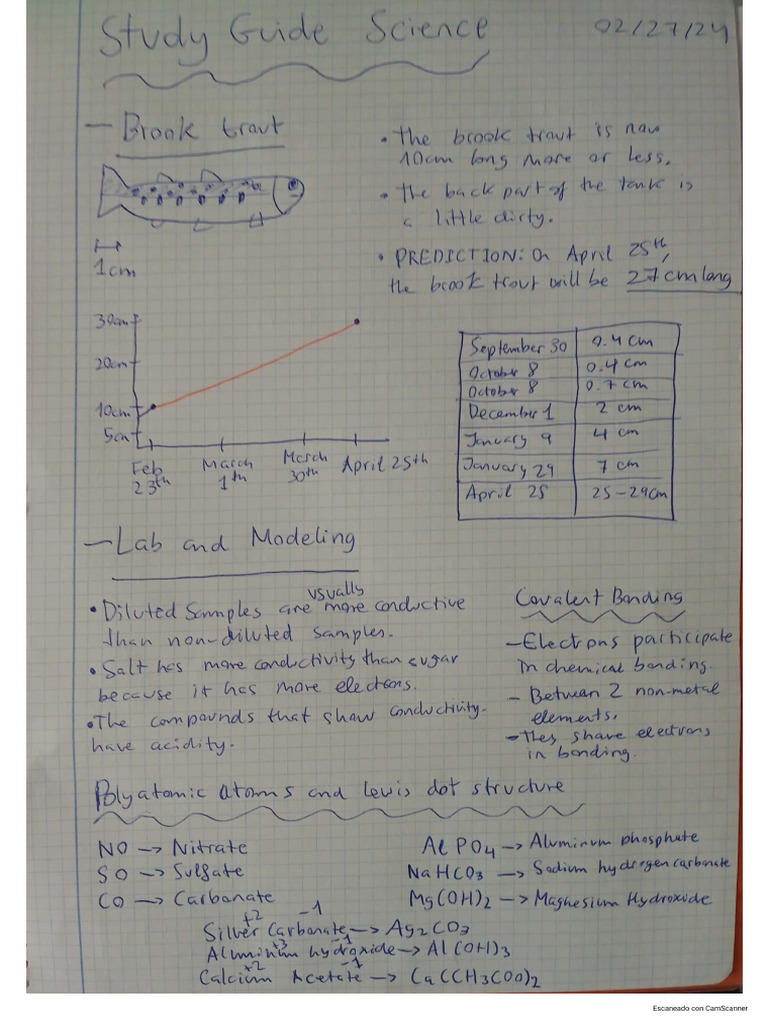 Study Guide Science 02/27/24
- Brook trout
1cm
• The brook trout is now
10cm long more or less.
• The back part of the tank is
a little dirty.
• PREDICTION: On April 25th,
the brook trout will be 27cm long
30cm
20cm
10cm
5cm
Feb 23th
March 1th
March 30th
April 25th
September 30 0.4 cm
October 8 0.4 cm
October 8 0.7 cm
December 1 2 cm
January 9 4 cm
January 29 7 cm
April 25 25-29cm
- Lab and Modeling
usually
• Diluted Samples are more conductive
than non-diluted samples.
• Salt has more conductivity than sugar
because it has more electrons.
• The compounds that show conductivity
have acidity.
Covalent Bonding
- Electrons participate
in chemical bonding.
- Between 2 non-metal
elements.
- They share electrons
in bonding.
Polyatomic atoms and lewis dot structure
NO → Nitrate
SO → Sulfate
CO → Carbonate
Al PO4 → Aluminum phosphate
NaHCO3 → Sodium hydrogen carbonate
Mg(OH)2 → Magnesium Hydroxide
+2 -1
Silver Carbonate → Ag2CO3
+3 -1
Aluminium hydroxide → Al(OH)3
+2 -1
Calcium Acetate → Ca(CH3COO)2
Escaneado con CamScanner